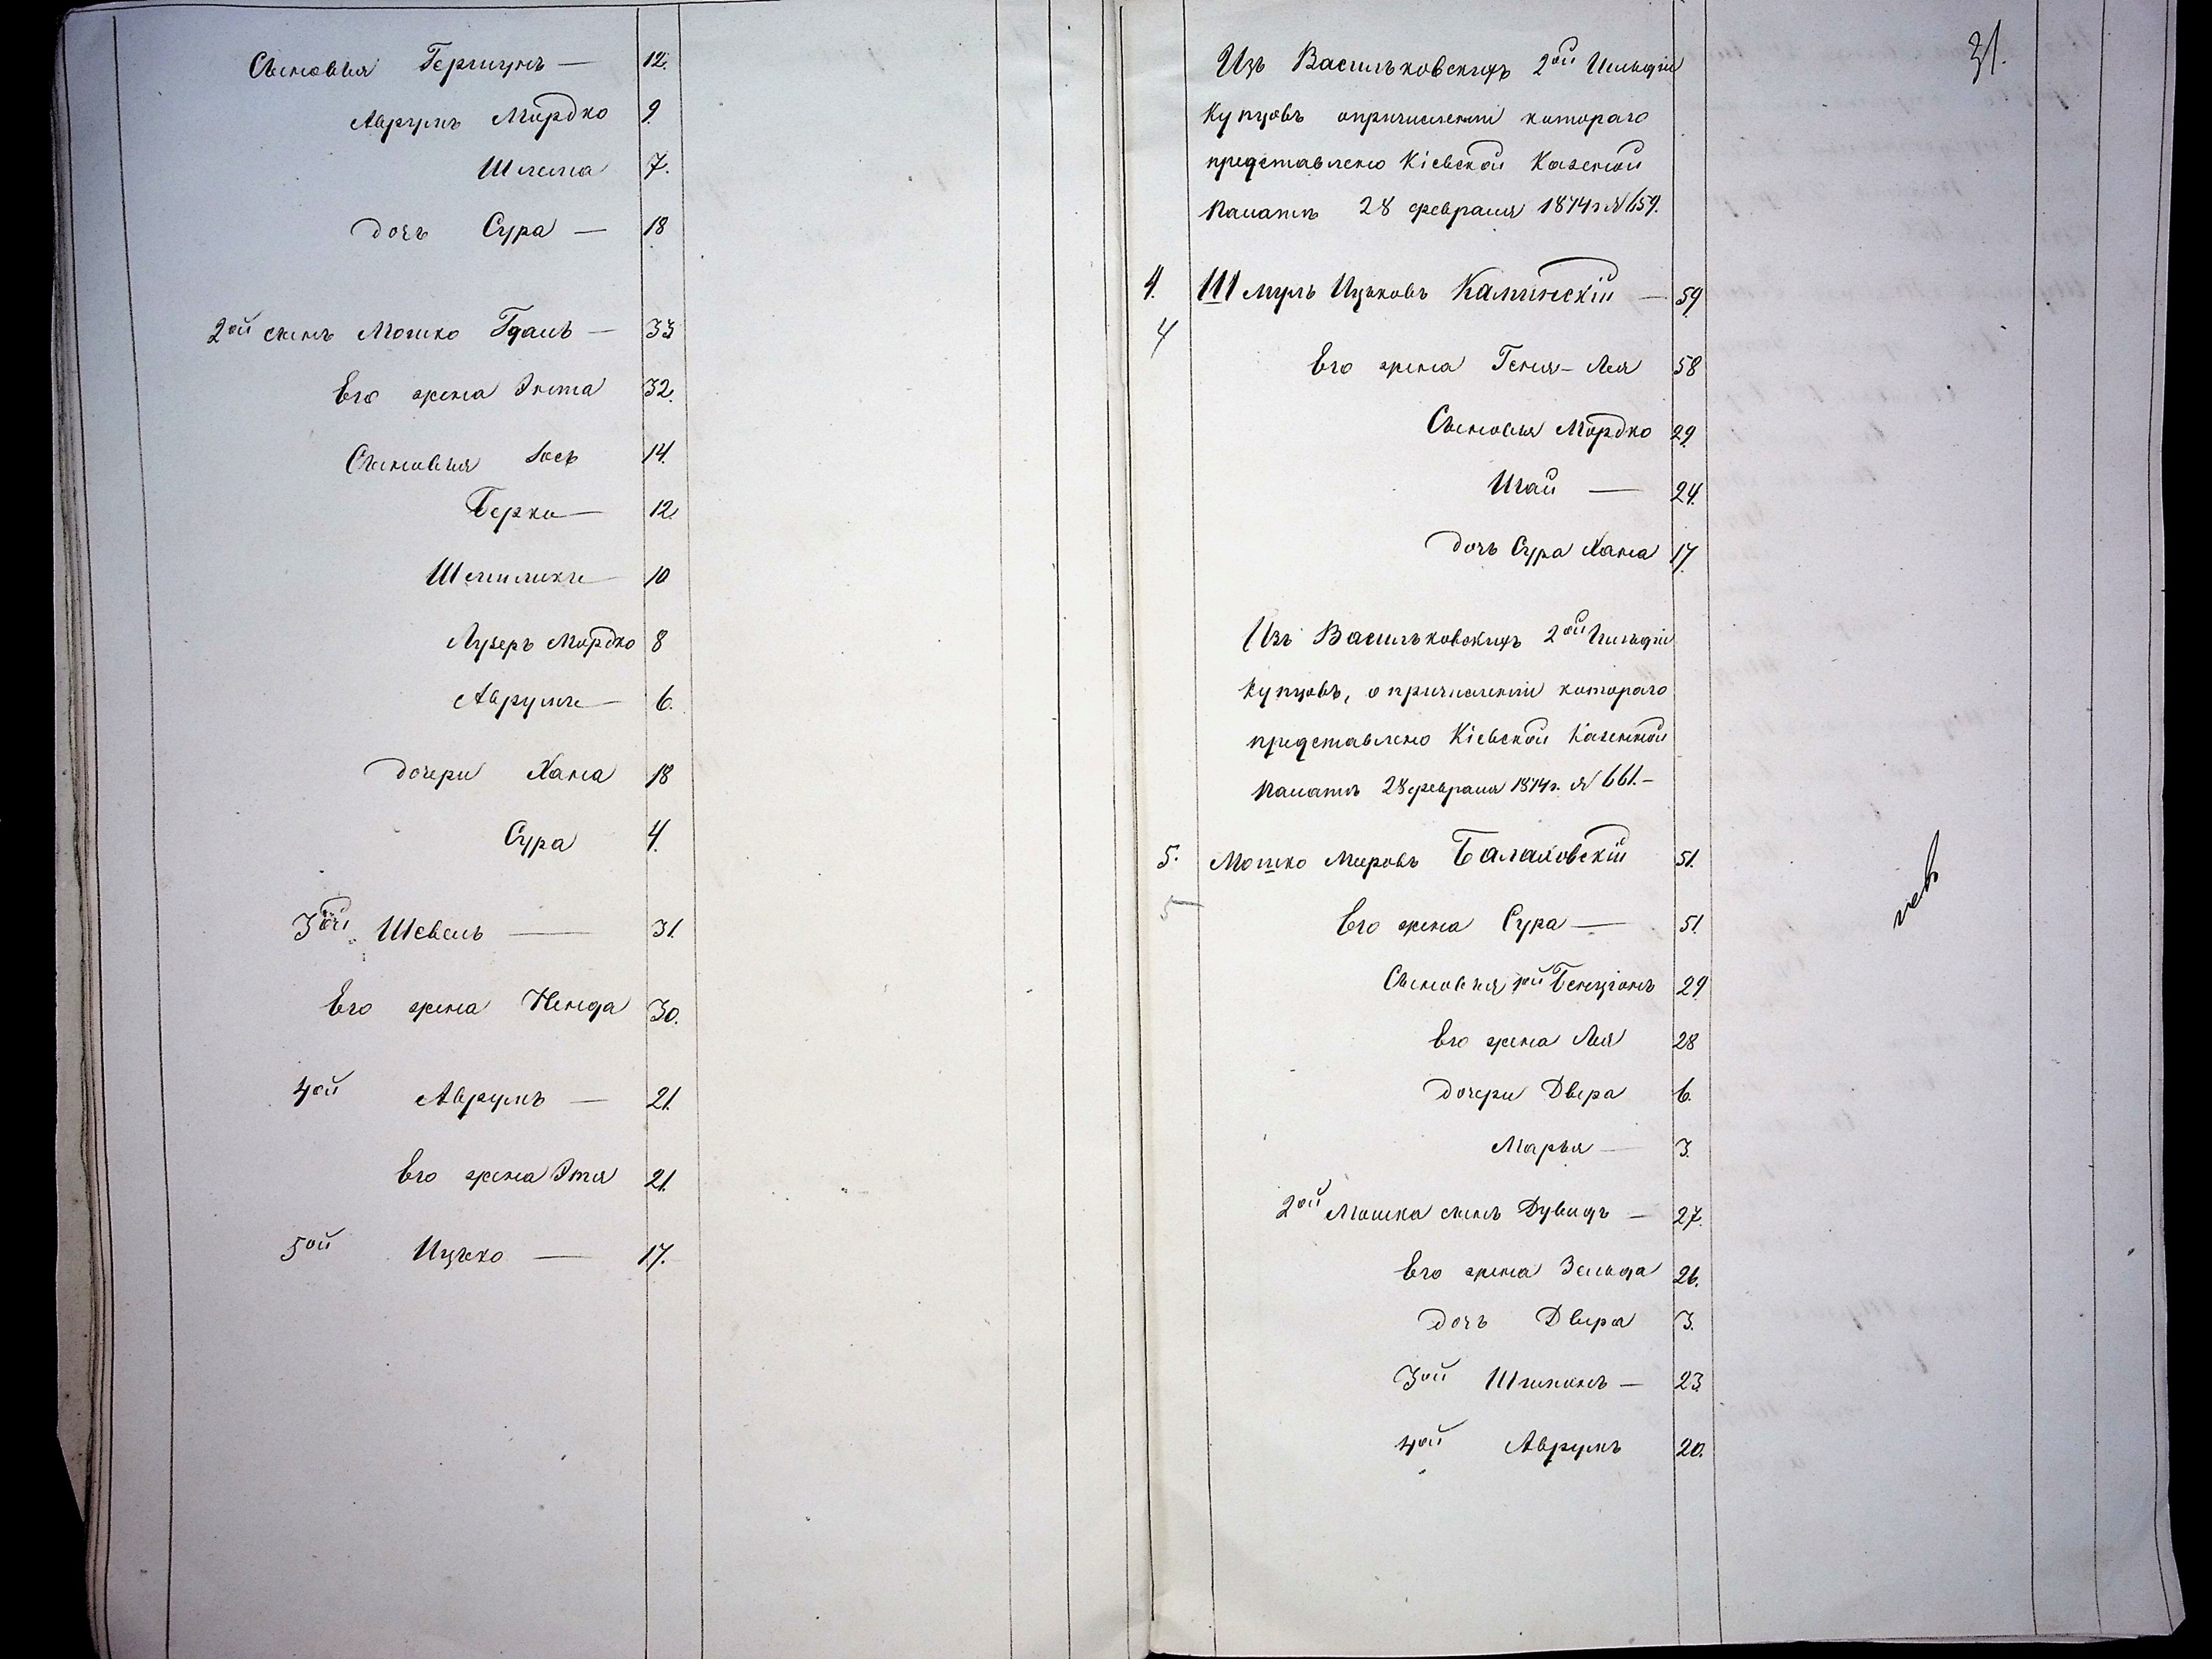 Сыновья Гершунъ — 12.
Аврумъ Мордко 9.
Шлема 7.
дочь Сура — 18
2ой сынъ Мошко Гдаль — 33
Его жена Энта 32.
Сыновья Іось 14.
Берко — 12.
Шмилихъ — 10
Лузеръ Мордко 8
Аврумъ — 6.
дочери Хана 18
Сура 4.
3ой Шевель — 31.
Его жена Ненда 30.
4ой Аврумъ — 21.
Его жена Этя 21.
5ой Ицько — 17.
31.
Изъ Васильковскихъ 2ой Гильдіи
Купцовъ опричисленіи котораго
представлено Кіевской Казеной
Палатѣ 28 февраля 1874 г. № 659.
4. Шмуль Ицьковъ Каминскій — 59
4
Его жена Геня-Лея 58
Сыновья Мордко 29.
Шай — 24.
дочь Сура Хана 17.
Изъ Васильковскихъ 2ой Гильдіи
Купцовъ, о причисленіи котораго
представлено Кіевской Казенной
Палатѣ 28 февраля 1874 г. № 661. —
5. Мошко Меровъ Балаховскій 51.
5
Его жена Сура — 51.
Сыновья 1ой Бенціонъ 29
Его жена Лея 28
дочери Двера 6.
Марья — 3.
2ой Мошка сынъ Дувидъ — 27.
Его жена Зельда 26.
дочь Двера 3.
3ой Шимонъ — 23
4ой Аврумъ 20.